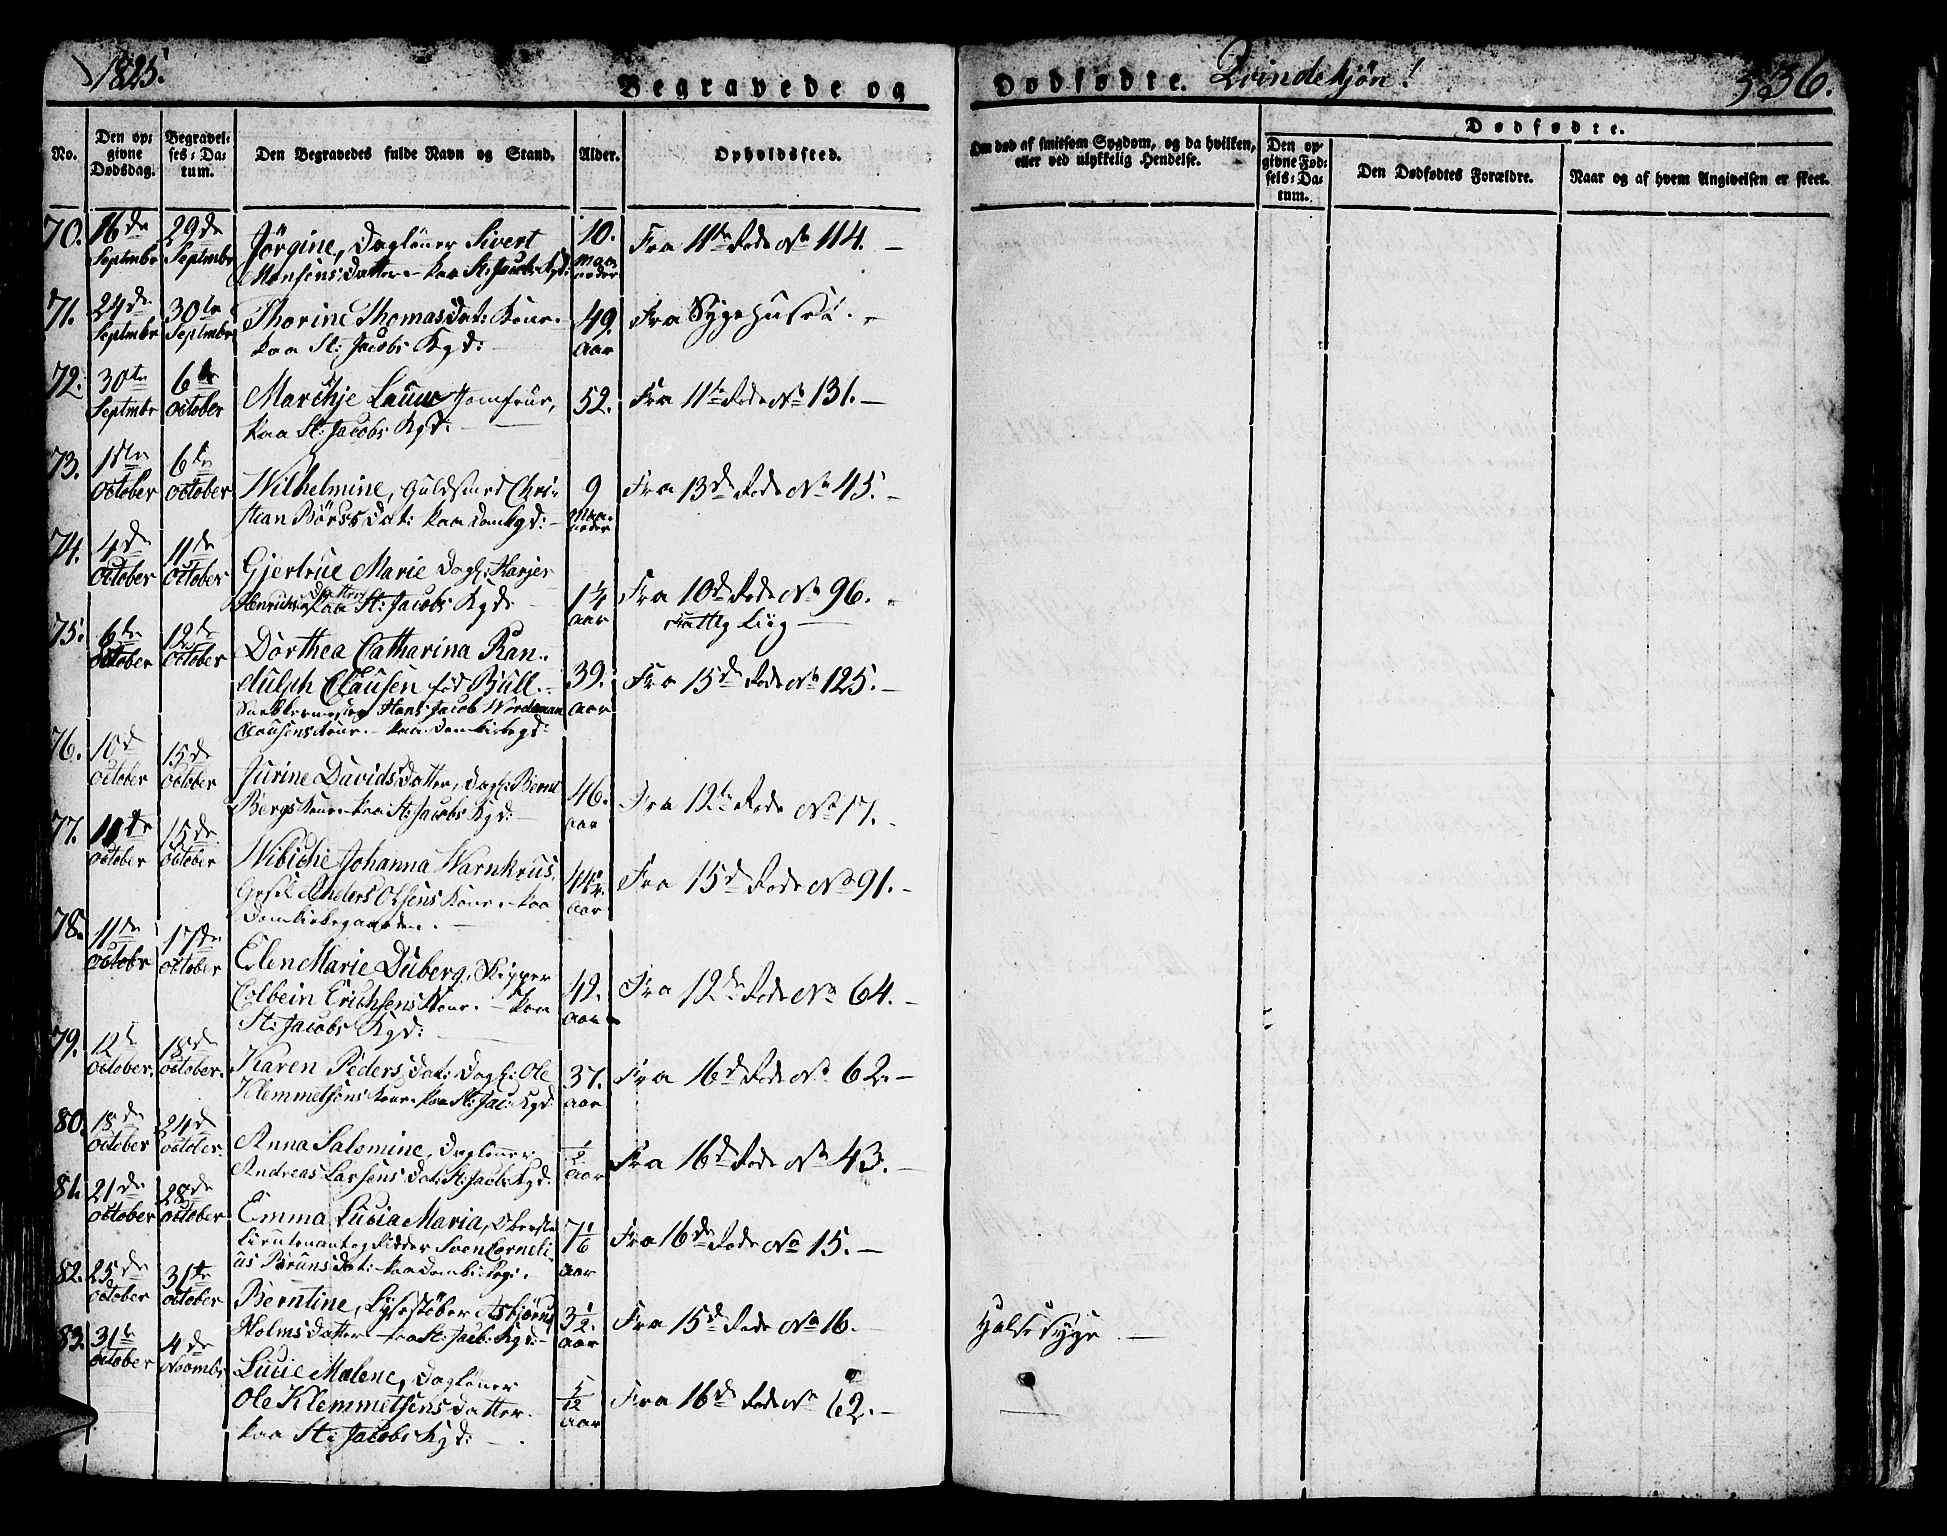 1825.
Begravede og
Dødfødte. Qvindekjøn!
336.
No.
Den opgivne Dødsdag.
Begravelses-Datum.
Den Begravedes fulde Navn og Stand.
Alder.
Opholdssted.
Om død af smitsom Sygdom, og da hvilken, eller ved ulykkelig Hendelse.
Dødfødte.
Den opgivne Fødsels-Datum.
Den Dødfødtes Forældre.
Naar og af hvem Angivelsen er skeet.
70. 16de Septmbr 29de Septmbr Jörgine, Daglöner Sivert 10. Maaneder Fra 11te Rode No 114. —
Monsens Datter – paa St: Jacobs Kgd:
71. 24de Septmbr 30te Septmbr Thorine Thomasdat: Kone – 49. aar Fra Sygehuset. –
paa St: Jacobs Kgd: –
72. 30te Septmbr 6te October Marchje Lauw Jomfrue, 52. Fra 11te Rode No 131. —
paa St: Jacobs Kgd. —
73. 1ste October 6te October Wilhelmine, Guldsmed Chri- 9 Maaneder Fra 13de Rode No 45. –
stian Börss Dat: paa Domkgd: –
74. 4de October 11te October Gjertrue Marie Dagl: Harjer
Henrichsens Datter paa St: Jacobs Kgd: 1¼ aar Fra 10de Rode No 96. –
fattig Liig —
75. 6te October 12te October Dorthea Catharina Ran-
dulph Clausen föd Büll – 39. aar Fra 15de Rode No 125. –
Hans Jacob Wordeman
Clausens Kone. – paa Domkirkegd:
76. 10de October 15de October Jurine Davids Datter, Dagl: Bernt 46. aar Fra 12te Rode No 17. –
Bergs Kone – paa St: Jacobs Kgd: –
77. 10de October 15de October Wibiche Johanna Warnkrus, 44 aar Fra 15de Rode No 91. –
Gesel Anders Olsens Kone – paa
Domkirkegaarden. –
78. 11te Octobr 17de October Elen Marie Duberg, Skipper
Colbein Erichsens Kone. – paa 42. aar Fra 12te Rode No 64. –
St: Jacobs Kgd: –
79. 12te October. 18de October. Karen Peders Dat: Dagl: Ole 37. aar Fra 16de Rode No 62. –
Klemmetsens Kone – paa St: Jac: Kgd:
80. 18de October 24de October. Anna Salomine, Daglöner ½ aar Fra 16de Rode No 43. –
Andreas Larsens Dat: St: Jacobs Kgd.
81. 21de October 28de October Emma Lucia Maria, Oberst- 7 1/6 aar Fra 16de Rode No 15. –
lieutenant og Ridder Sven Corneli-
us Bruuns Dat: – paa Domkirkeg: –
82. 25de October 31te October Berntine, Lysestöber Asbjörns 3½ aar Fra 15de Rode No 16. – Halssyge –
Holms Datter – paa St: Jacb: Kgd: –
83. 31te October 4de Novmbr Lucie Malene, Daglöner
Ole Klemmetsens Datter – 5/12 aar Fra 16de Rode No 62. –
paa St: Jacobs Kgd: –